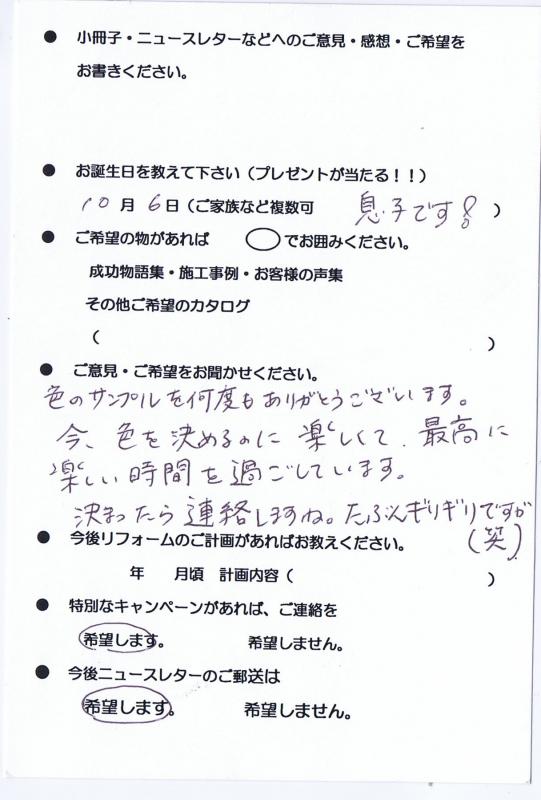 ● 小冊子・ニュースレターなどへのご意見・感想・ご希望を
お書きください。
● お誕生日を教えて下さい（プレゼントが当たる！！）
10月6日（ご家族など複数可 息子です!）
● ご希望の物があれば ◯でお囲みください。
成功物語集・施工事例・お客様の声集
その他ご希望のカタログ
（ ）
● ご意見・ご希望をお聞かせください。
色のサンプルを何度もありがとうございます。
今、色を決めるのに楽しくて、最高に
楽しい時間を過ごしています。
決まったら連絡しますね。たぶんギリギリですが
（笑）
● 今後リフォームのご計画があればお教えください。
年 月頃 計画内容（ ）
● 特別なキャンペーンがあれば、ご連絡を
希望します。 希望しません。
● 今後ニュースレターのご郵送は
希望します。 希望しません。